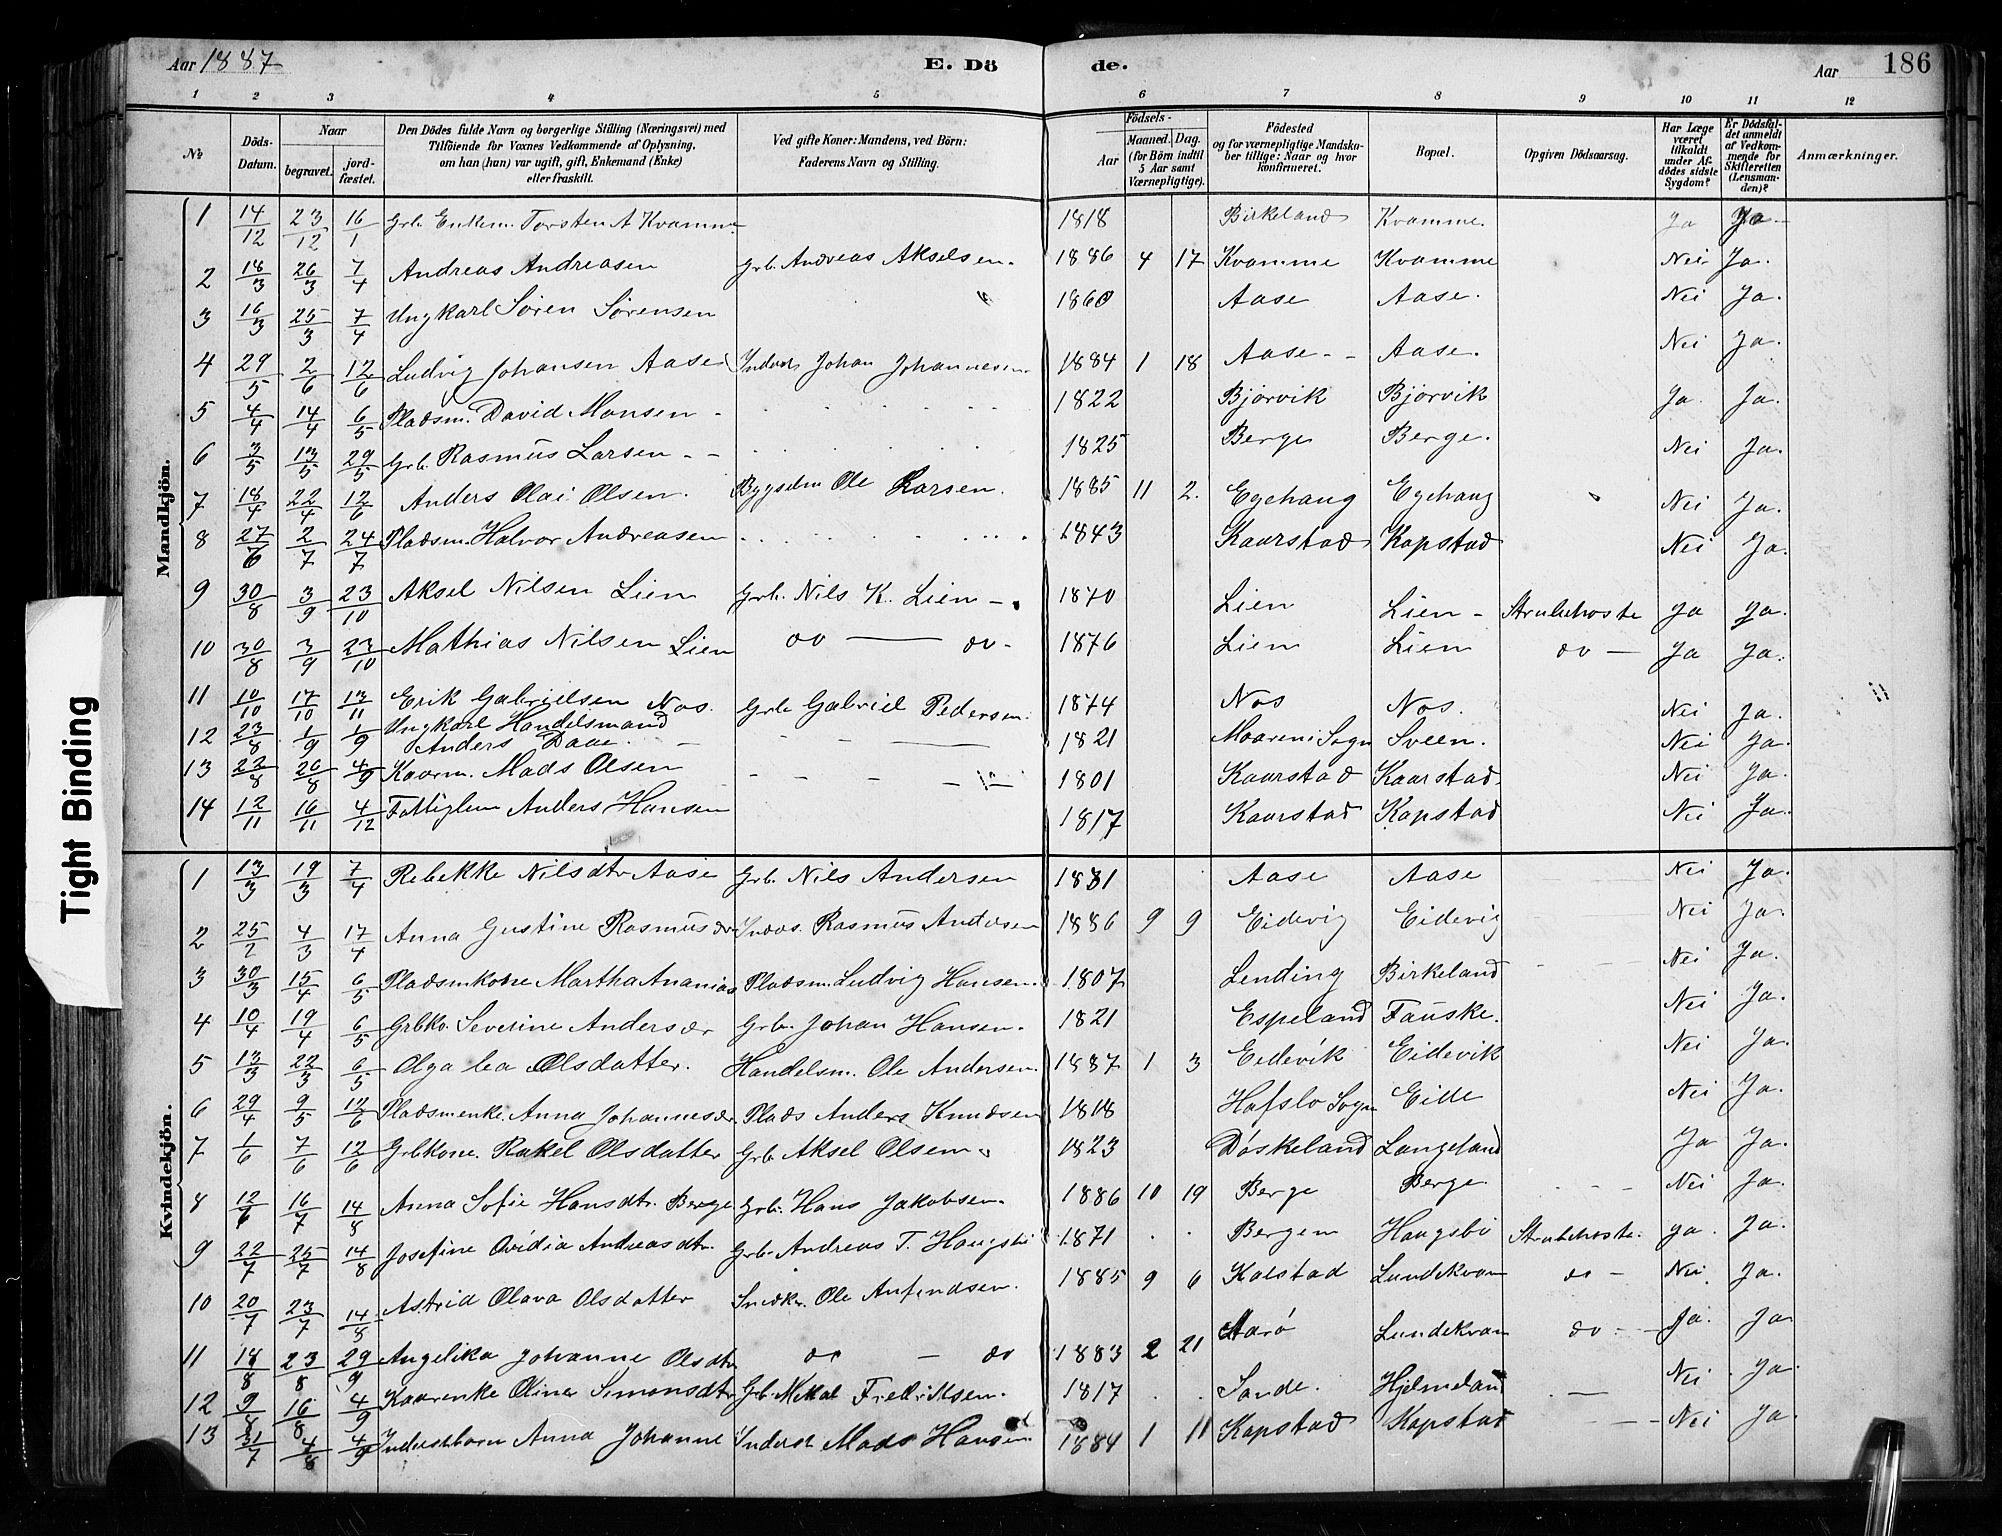 Aar 1887 E. Dö de. Aar 186
1 2 3 4 5 6 7 8 9 10 11 12
No Döds-Datum. Naar begravet. jordfæstet. Den Dödes fulde Navn og borgerlige Stilling (Næringsvei) med Tilföiende for Voxnes Vedkommende af Oplysning, om han (hun) var ugift, gift, Enkemand (Enke) eller fraskilt. Ved gifte Koner: Mandens, ved Börn: Faderens Navn og Stilling. Födsels- Aar Maaned. Dag. (for Börn indtil 5 Aar samt Værnepligtige). Födested og for værnepligtige Mandskaber tillige: Naar og hvor konfirmeret. Bopæl. Opgiven Dödsaarsag. Har Læge været tilkaldt under Afdödes sidste Sygdom? Er Dödsfaldet anmeldt af Vedkommende for Skifteretten (Lensmanden)? Anmærkninger.
Mandkjön.
1 14/12 23/12 16/1 Grb. Enkem. Torsten A Kvamme 1818 Birkeland Kvamme. Ja Ja
2 18/3 26/3 7/4 Andreas Andreasen Grb. Andreas Akselsen. 1886 4 17 Kvamme Kvamme Nei Ja.
3 16/3 25/3 7/4 Ungkarl Søren Sørensen 1860 Aase Aase. Nei Ja.
4 29/5 2/6 12/6 Ludvig Johansen Aase Inderst Johan Johannesen 1884 1 18 Aase - - Aase. Nei Ja.
5 4/4 14/4 6/5 Pladsm. David Monsen - 1822 Bjørvik Bjørvik Ja. Ja.
6 3/5 13/5 29/5 Grb. Rasmus Larsen - - 1825 Berge Berge. Nei Ja.
7 18/4 22/4 12/6 Anders Olai Olsen. Bygselm Ole Larsen. 1885 11 2. Egehaug Egehaug Nei Ja.
8 27/6 2/7 24/7 Pladsm. Halvor Andreasen 1843 Kaarstad Kopstad Nei Ja.
9 30/8 3/9 23/10 Aksel Nilsen Lien Grb. Nils K. Lien - 1870 Lien Lien - Strubehoste Ja Ja.
10 30/8 3/9 23/10 Mathias Nilsen Lien do — do - 1876 Lien Lien do — Ja Ja.
11 10/10 17/10 13/11 Erik Gabrielsen Nos. Grb Gabriel Pedersen. 1874 Nos Nos. Nei Ja.
12 23/8 1/9 1/9 Ungkarl Handelsmand
Anders Daae. 1821 Sogn Sveen. Nei Ja.
13 22/8 26/8 4/9 Kaarm. Mads Olsen 1801 Kaarstad Kaarstad. Nei Ja.
14 12/11 16/11 4/12 Fattiglem Anders Hansen 1817 Kaarstad Kopstad Nei Ja.
Kvindekjön.
1 13/3 19/3 7/4 Rebekke Nilsdtr Aase Grb. Nils Andersen 1881 Aase Aase Nei Ja.
2 25/2 4/3 17/4 Anna Gustine Rasmusdr Rasmus Andersen 1886 9 9 Eidevig Eidevig Nei Ja.
3 30/3 15/4 6/5 Pladsmkone Martha Ananias Pladsm. Ludvig Hansen. 1807 Lending Birkeland Nei Ja.
4 10/4 19/4 6/5 Grbko. Severine Andersdr Grb. Johan Hansen. 1821 Espeland Fauske. Nei Ja
5 13/3 22/3 6/5 Olga Lea Olsdatter. Handelsm. Ole Andersen. 1887 1 3 Eidevik Eidevik Nei Ja.
6 29/4 9/5 12/6 Pladsmenke. Anna Johannesdr Plads Anders Knudsen 1818 Hafslo Sogn Eide Nei Ja.
7 1/6 7/6 12/6 Grbkone. Rakel Olsdatter Grb. Aksel Olsen. 1823 Døskeland Langeland Ja Ja.
8 12/6 16/7 14/8 Anna Sofie Hansdtr. Berge Grb. Hans Jakobsen. 1886 10 19 Berge Berge Nei Ja.
9 22/7 25/7 14/8 Josefine Ovidia Andreasdtr. Grb. Andreas T. Haugsbø 1871 Bergen Haugsbø Strubehoste. Ja. Ja.
10 20/7 23/7 14/8 Astrid Olava Olsdatter Snedkr. Ole Anfindsen. 1885 9 6 Kalstad Lundekvam do - Nei Ja.
11 18/8 23/8 29/9 Angelika Johanne Olsdtr do — do 1883 2 21 Aarø Lundekvam do - Ja. Ja
12 9/8 16/8 4/9 Kaarenke Oline Simonsdtr Grb. Mikal Fredriksen. 1817 Sande. Hjelmeland — Nei Ja.
13 31/7 4/8 4/9 Inderstbarn Anna Johanne Inderst Mads Hansen 1884 1 11 Kopstad Kopstad — Nei Ja.
Tight Binding